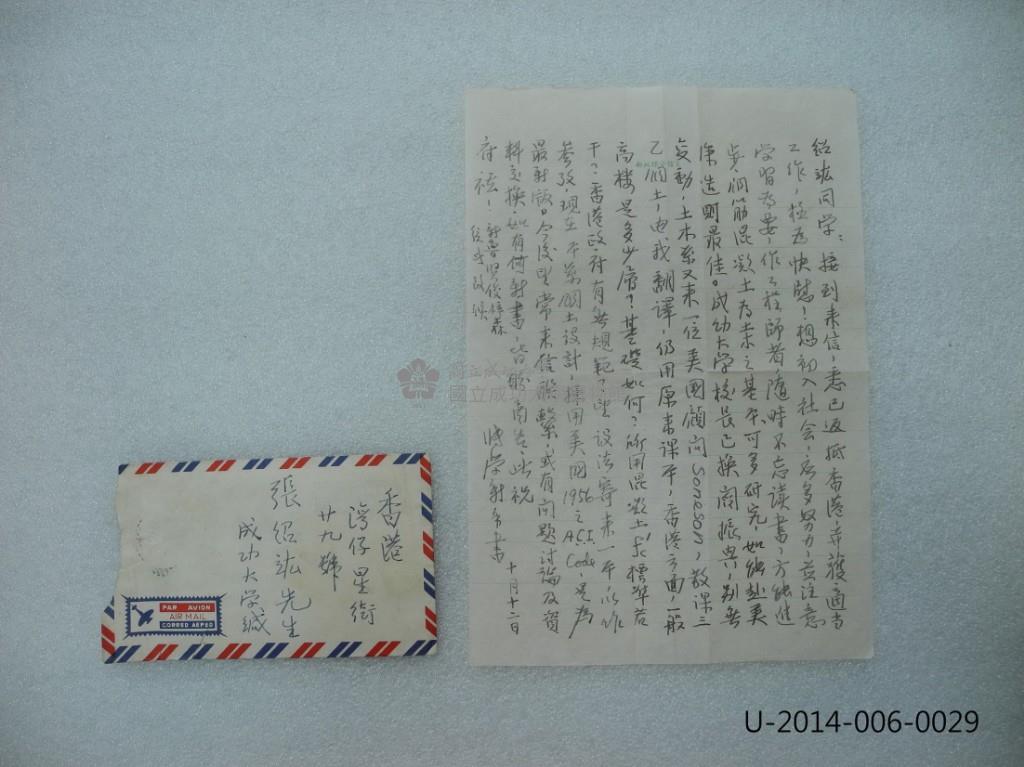 紹竑同学：接到来信，悉已返抵香港，幸獲適当
工作，極為快慰！想初入社会，应多努力，並注意
学習為要，作工程師者，隨時不忘读書，方能進
步，鋼筋混凝土為未之基本，可多研究，如能赴美
深造則最佳。成功大学校長已换閻振興，别無
变動，土木系又来一位美国顧问Soneson，教課三
乙鋼土，由我翻譯，仍用原来课本，香港方面，一般
高楼是多少層？基礎如何？所用混凝土標準若
干？香港政府有無規範？望设法寄来一本以作
参攷，現在本系鋼土设計，採用美国1956之A.C.I. Code，是為
最新版。今後望常来信聯繫，或有问題讨論及資
料交换，如有何新書，皆盼南告，此祝
府祺！
十月十二日
香港
灣仔星街
廿九號
張紹竑先生
成功大学緘
PAR AVION
AIR MAIL
CORREO AEREO
國立成功
U-2014-006-0029